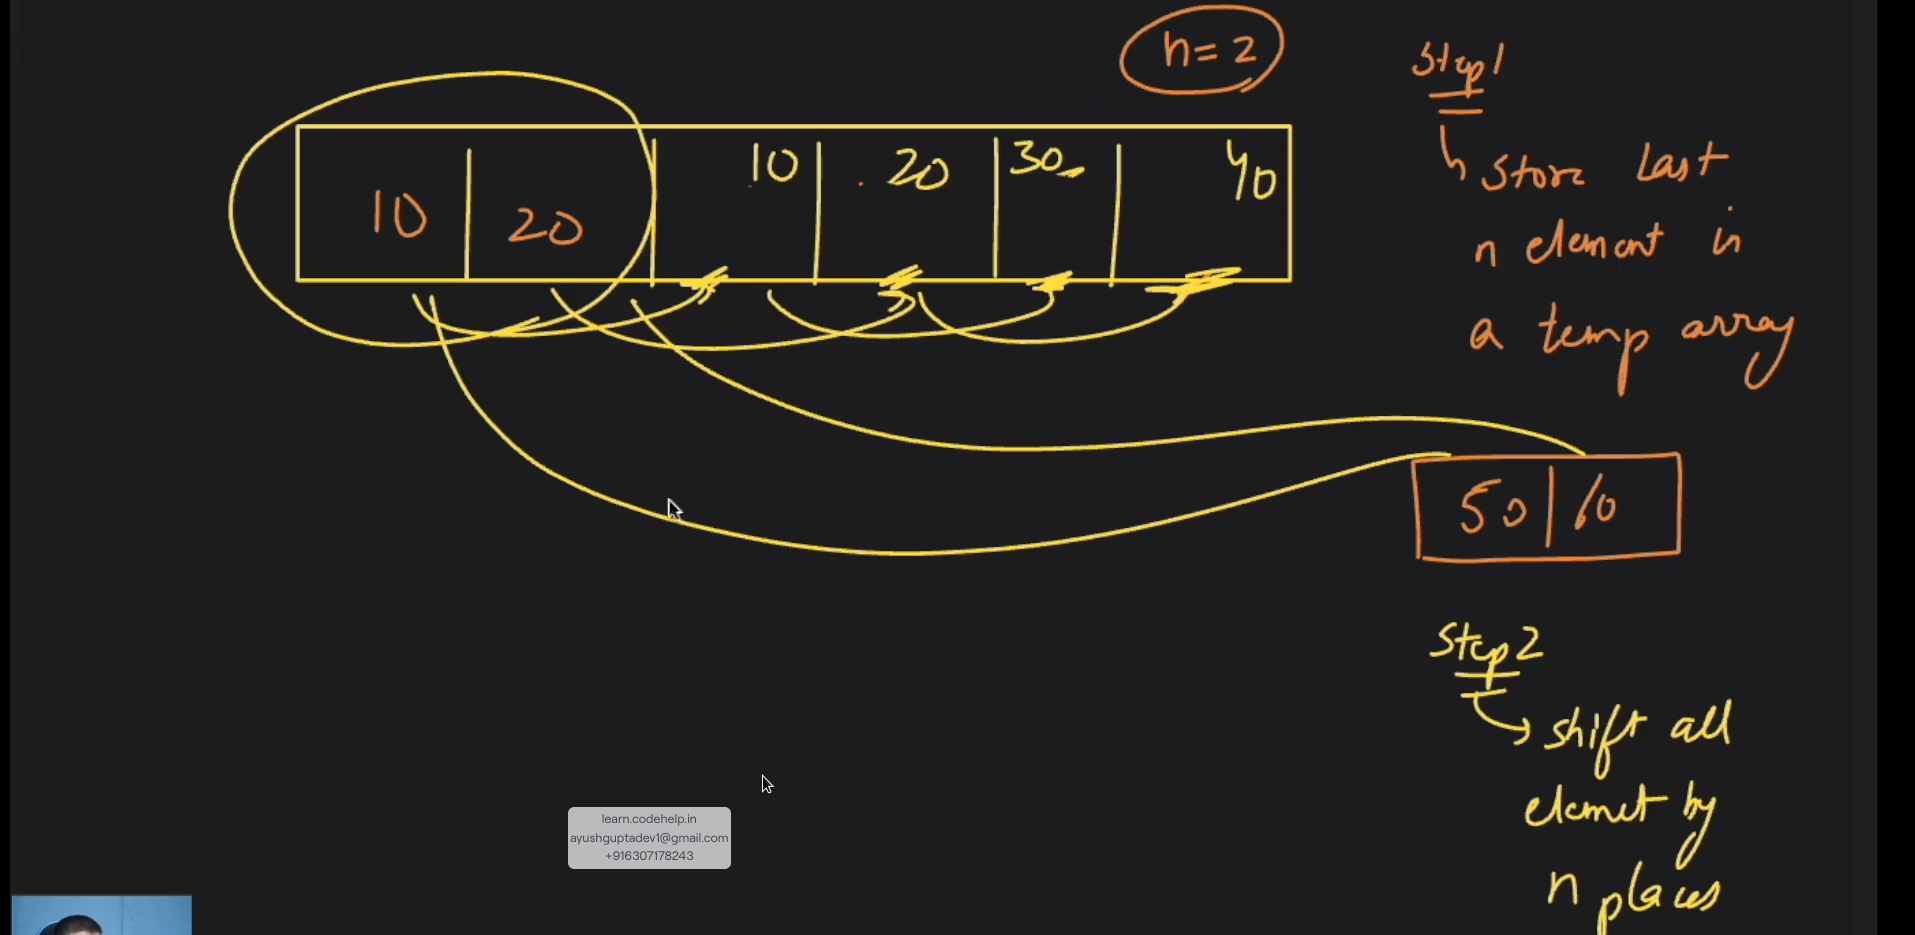 n=2
Step1
Store last
n element in
a temp array
10 20 10 20 30 40
50 60
Step2
shift all
elemet by
n places
learn.codehelp.in
ayushguptadev1@gmail.com
+916307178243